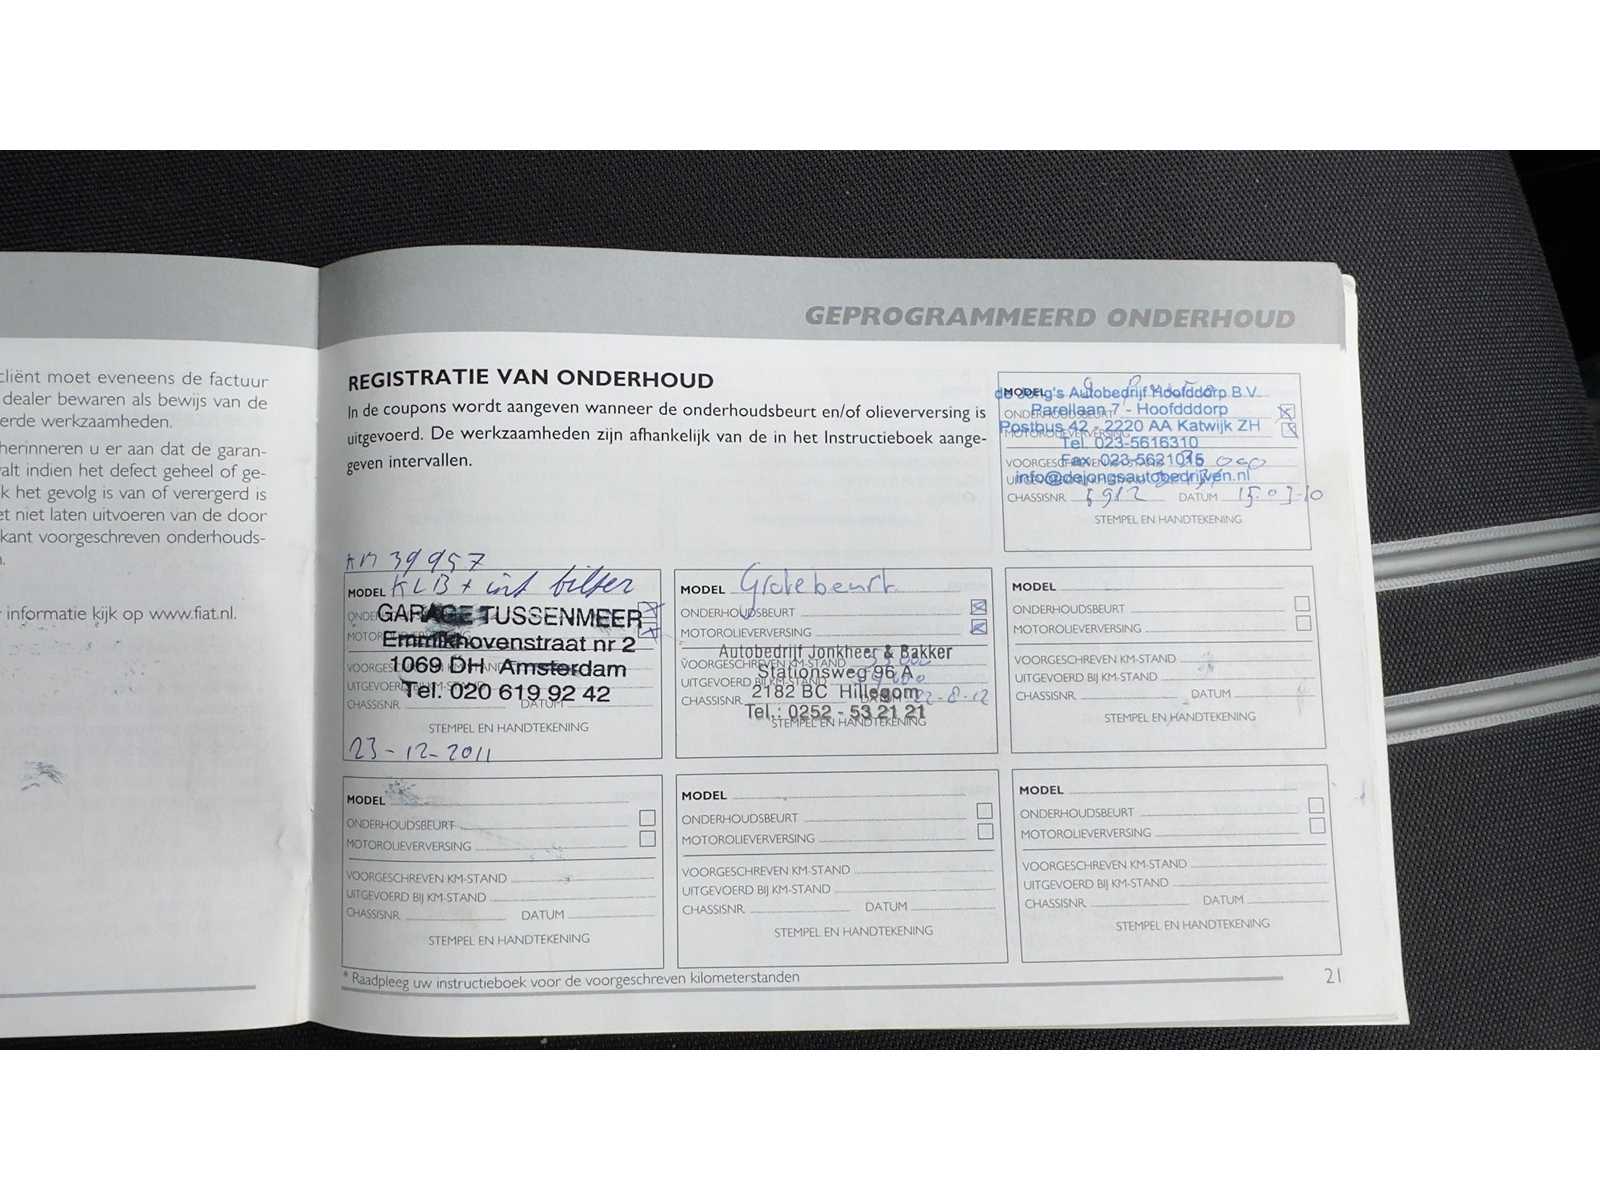 cliënt moet eveneens de factuur
dealer bewaren als bewijs van de
erde werkzaamheden.
herinneren u er aan dat de garan-
valt indien het defect geheel of ge-
k het gevolg is van of verergerd is
et niet laten uitvoeren van de door
kant voorgeschreven onderhouds-
informatie kijk op www.fiat.nl.
GEPROGRAMMEERD ONDERHOUD
REGISTRATIE VAN ONDERHOUD
In de coupons wordt aangeven wanneer de onderhoudsbeurt en/of olieverversing is
uitgevoerd. De werkzaamheden zijn afhankelijk van de in het Instructieboek aange-
geven intervallen.
MODEL
de Jong's Autobedrijf Hoofddorp B.V.
Parellaan 7 - Hoofdddorp
Postbus 42 - 2220 AA Katwijk ZH
Tel. 023-5616310
Fax. 023-5621015
info@dejongsautobedrijven.nl
CHASSISNR. 5912 DATUM 15-03-10
STEMPEL EN HANDTEKENING
KM 39957
MODEL KLB + int filter
GARAGE TUSSENMEER
Emmikhovenstraat nr 2
1069 DH Amsterdam
Tel. 020 619 92 42
CHASSISNR. DATUM
STEMPEL EN HANDTEKENING
23-12-2011
MODEL Grotebeurt
ONDERHOUDSBEURT
MOTOROLIEVERVERSING
Autobedrijf Jonkheer & Bakker
VOORGESCHREVEN KM-STAND
Stationsweg 96 A
UITGEVOERD BIJ KM-STAND
2182 BC Hillegom
CHASSISNR. 22-8-12
Tel.: 0252 - 53 21 21
STEMPEL EN HANDTEKENING
MODEL
ONDERHOUDSBEURT
MOTOROLIEVERVERSING
VOORGESCHREVEN KM-STAND
UITGEVOERD BIJ KM-STAND
CHASSISNR. DATUM
STEMPEL EN HANDTEKENING
MODEL
ONDERHOUDSBEURT
MOTOROLIEVERVERSING
VOORGESCHREVEN KM-STAND
UITGEVOERD BIJ KM-STAND
CHASSISNR. DATUM
STEMPEL EN HANDTEKENING
MODEL
ONDERHOUDSBEURT
MOTOROLIEVERVERSING
VOORGESCHREVEN KM-STAND
UITGEVOERD BIJ KM-STAND
CHASSISNR. DATUM
STEMPEL EN HANDTEKENING
MODEL
ONDERHOUDSBEURT
MOTOROLIEVERVERSING
VOORGESCHREVEN KM-STAND
UITGEVOERD BIJ KM-STAND
CHASSISNR. DATUM
STEMPEL EN HANDTEKENING
* Raadpleeg uw instructieboek voor de voorgeschreven kilometerstanden
21